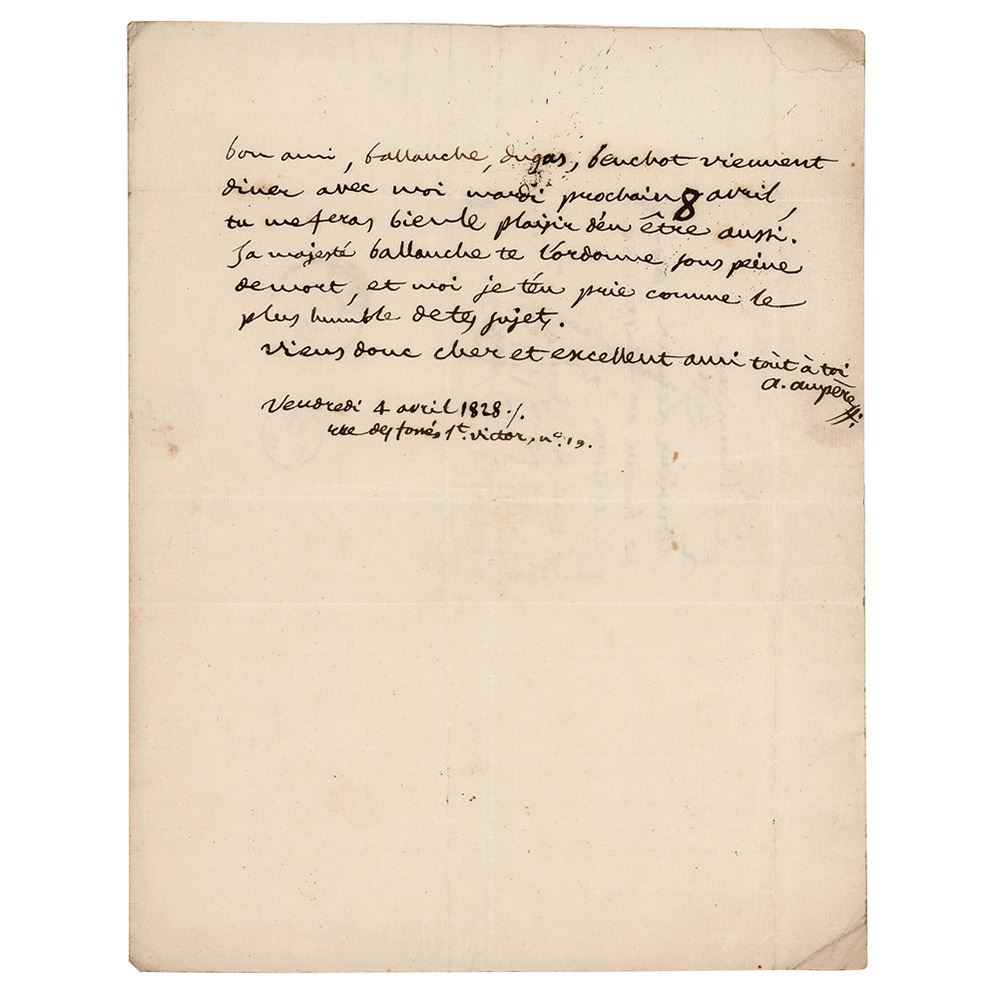 bon ami, ballanche, dugas, beuchot viennent
diner avec moi mardi prochain 8 avril,
tu me feras bien le plaisir d'en être aussi.
Sa majesté ballanche te l'ordonne sous peine
de mort, et moi je t'en prie comme le
plus humble de tes sujets.
viens donc cher et excellent ami tout à toi
a. ampère
Vendredi 4 avril 1828 ./.
rue des fossés St. victor, n°. 19.